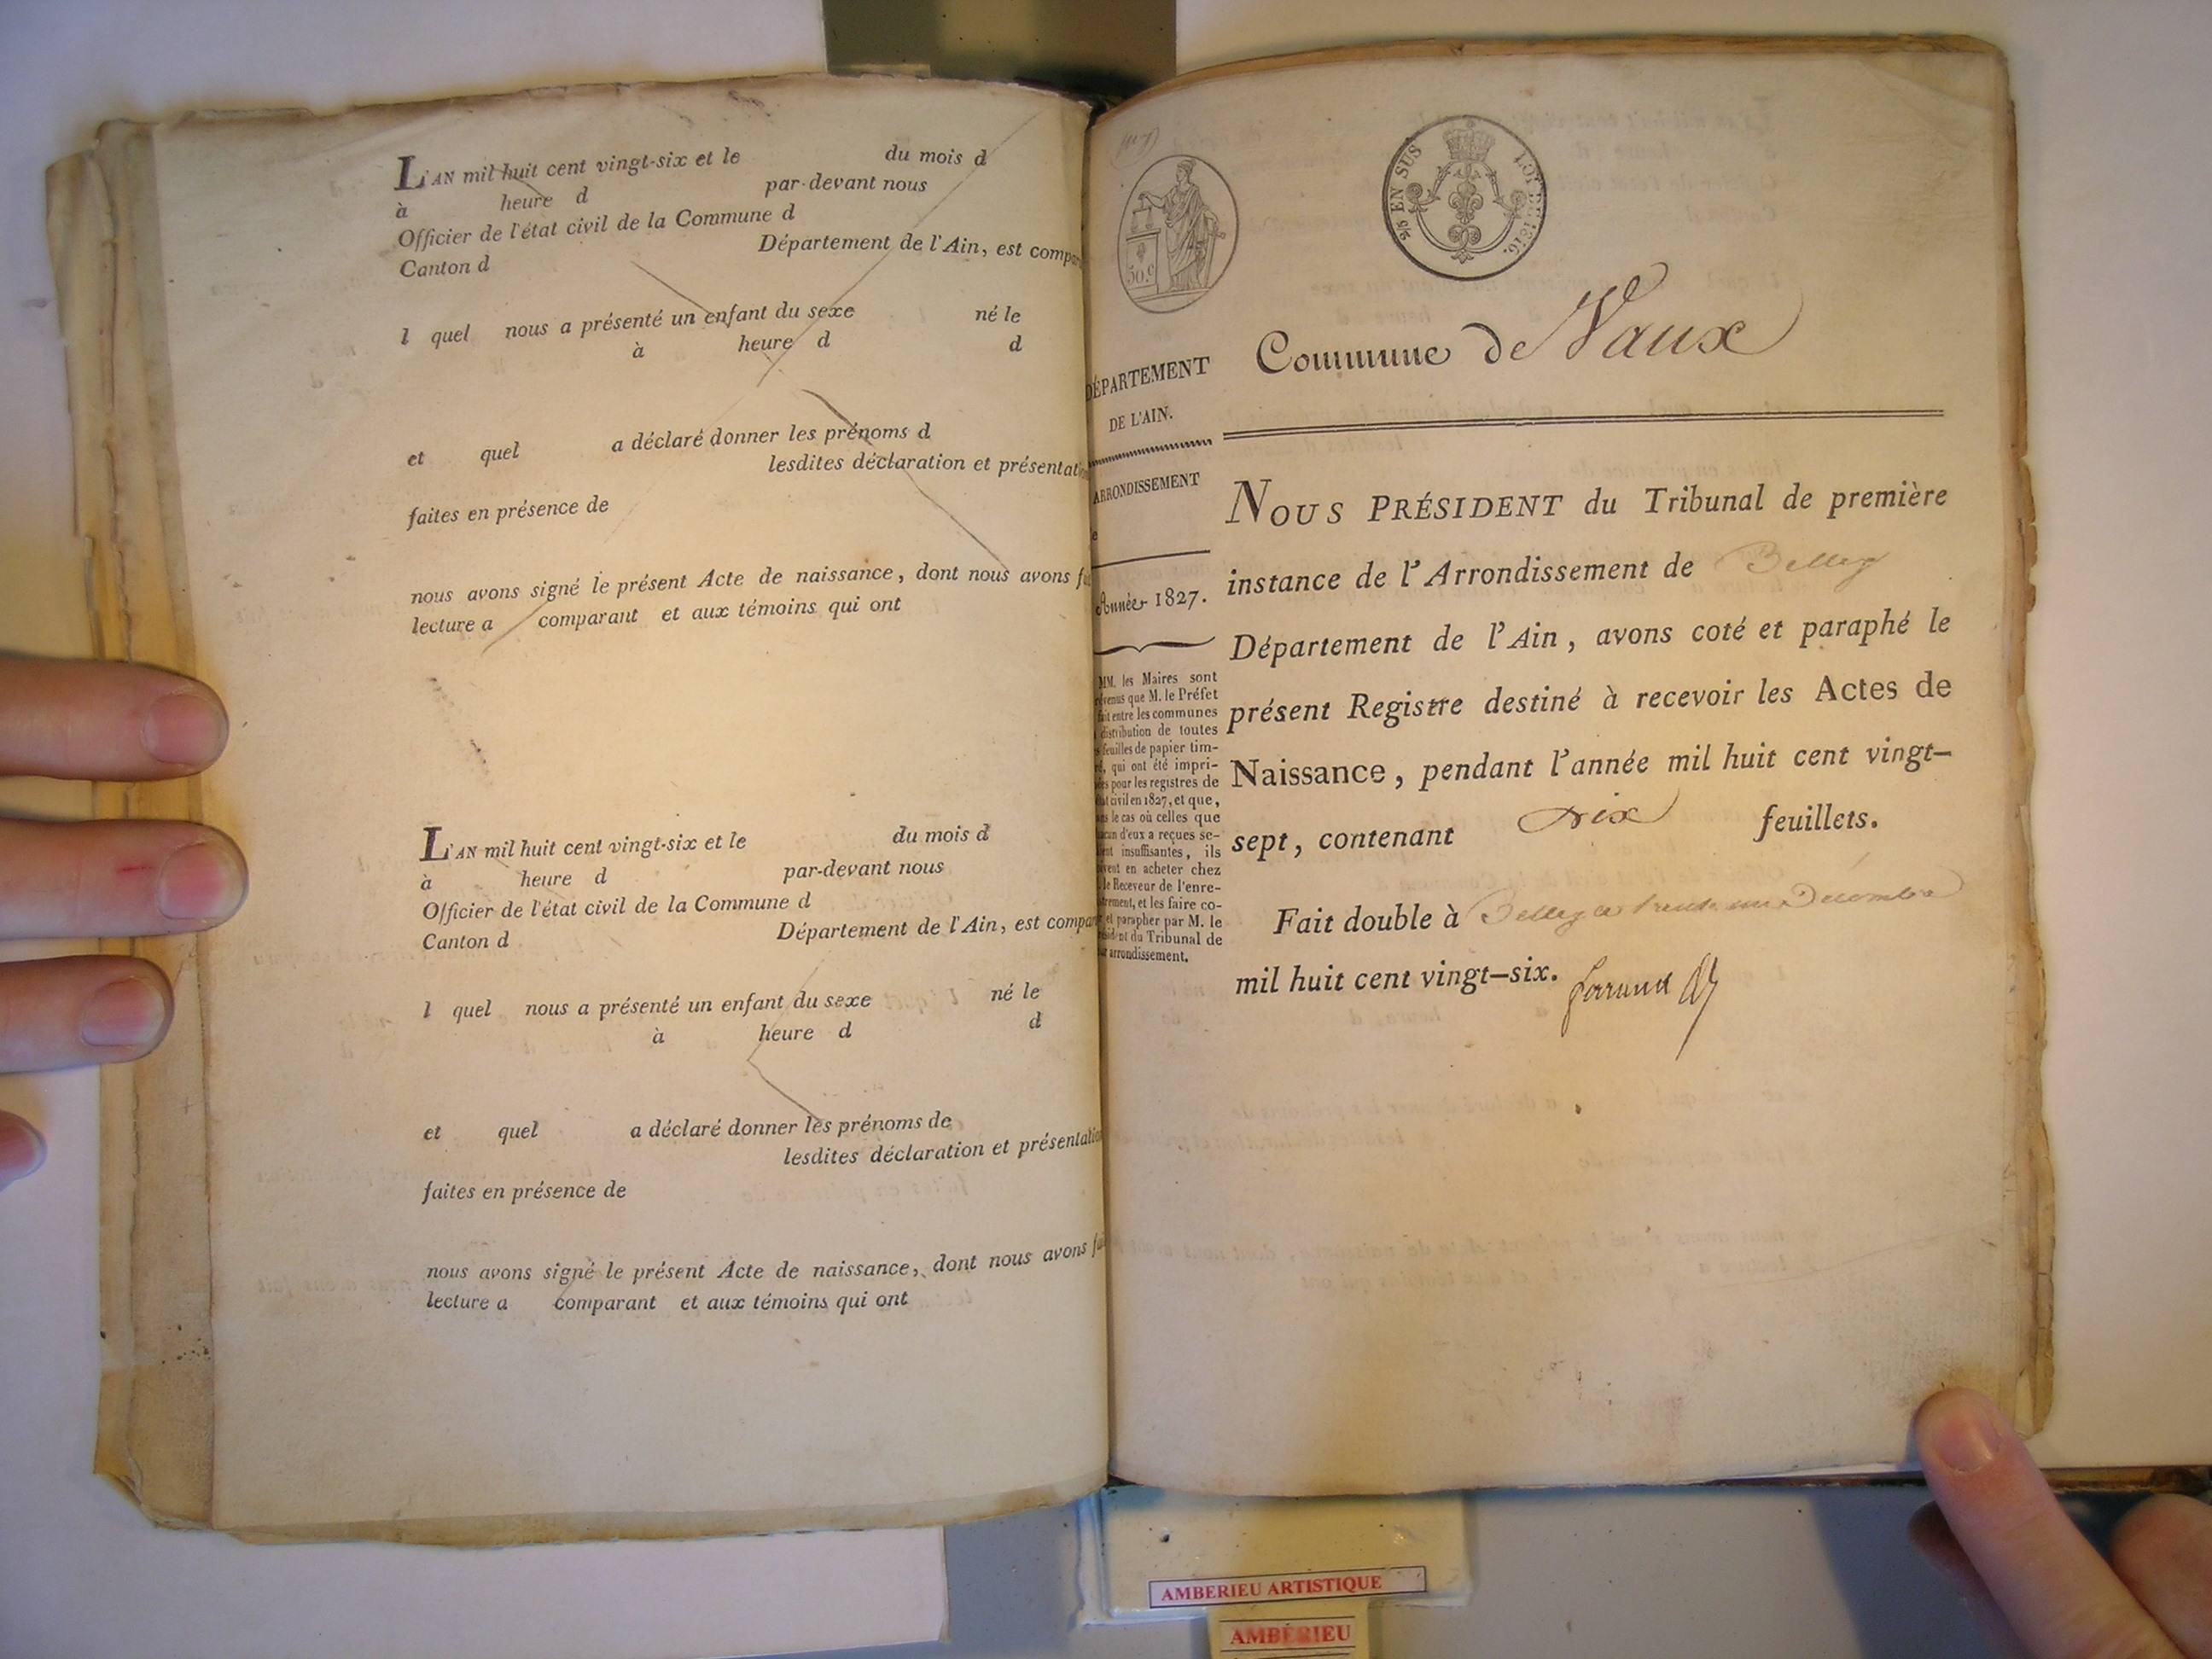 L'AN mil huit cent vingt-six et le du mois d
à heure d par-devant nous
Officier de l'état civil de la Commune d
Canton d Département de l'Ain, est compar
l quel nous a présenté un enfant du sexe né le
à heure d d
et quel a déclaré donner les prénoms d
lesdites déclaration et présentation
faites en présence de
nous avons signé le présent Acte de naissance, dont nous avons fai
lecture a comparant et aux témoins qui ont
L'AN mil huit cent vingt-six et le du mois d
à heure d par-devant nous
Officier de l'état civil de la Commune d
Canton d Département de l'Ain, est compar
l quel nous a présenté un enfant du sexe né le
à heure d d
et quel a déclaré donner les prénoms de
lesdites déclaration et présentation
faites en présence de
nous avons signé le présent Acte de naissance, dont nous avons fai
lecture a comparant et aux témoins qui ont
50.c
EN SUS LOI DE 1816.
DÉPARTEMENT
DE L'AIN.
ARRONDISSEMENT
Année 1827.
MM. les Maires sont
prévenus que M. le Préfet
fait entre les communes
distribution de toutes
feuilles de papier tim-
bré, qui ont été impri-
mées pour les registres de
l'état civil en 1827, et que,
dans le cas où celles que
chacun d'eux a reçues se-
raient insuffisantes, ils
doivent en acheter chez
le Receveur de l'enre-
gistrement, et les faire co-
ter et parapher par M. le
Président du Tribunal de
leur arrondissement.
Commune de Vaux
NOUS PRÉSIDENT du Tribunal de première
instance de l'Arrondissement de Belley
Département de l'Ain, avons coté et paraphé le
présent Registre destiné à recevoir les Actes de
Naissance, pendant l'année mil huit cent vingt-
sept, contenant dix feuillets.
Fait double à Belley le trente un Décembre
mil huit cent vingt-six.
AMBERIEU ARTISTIQUE
AMBÉRIEU